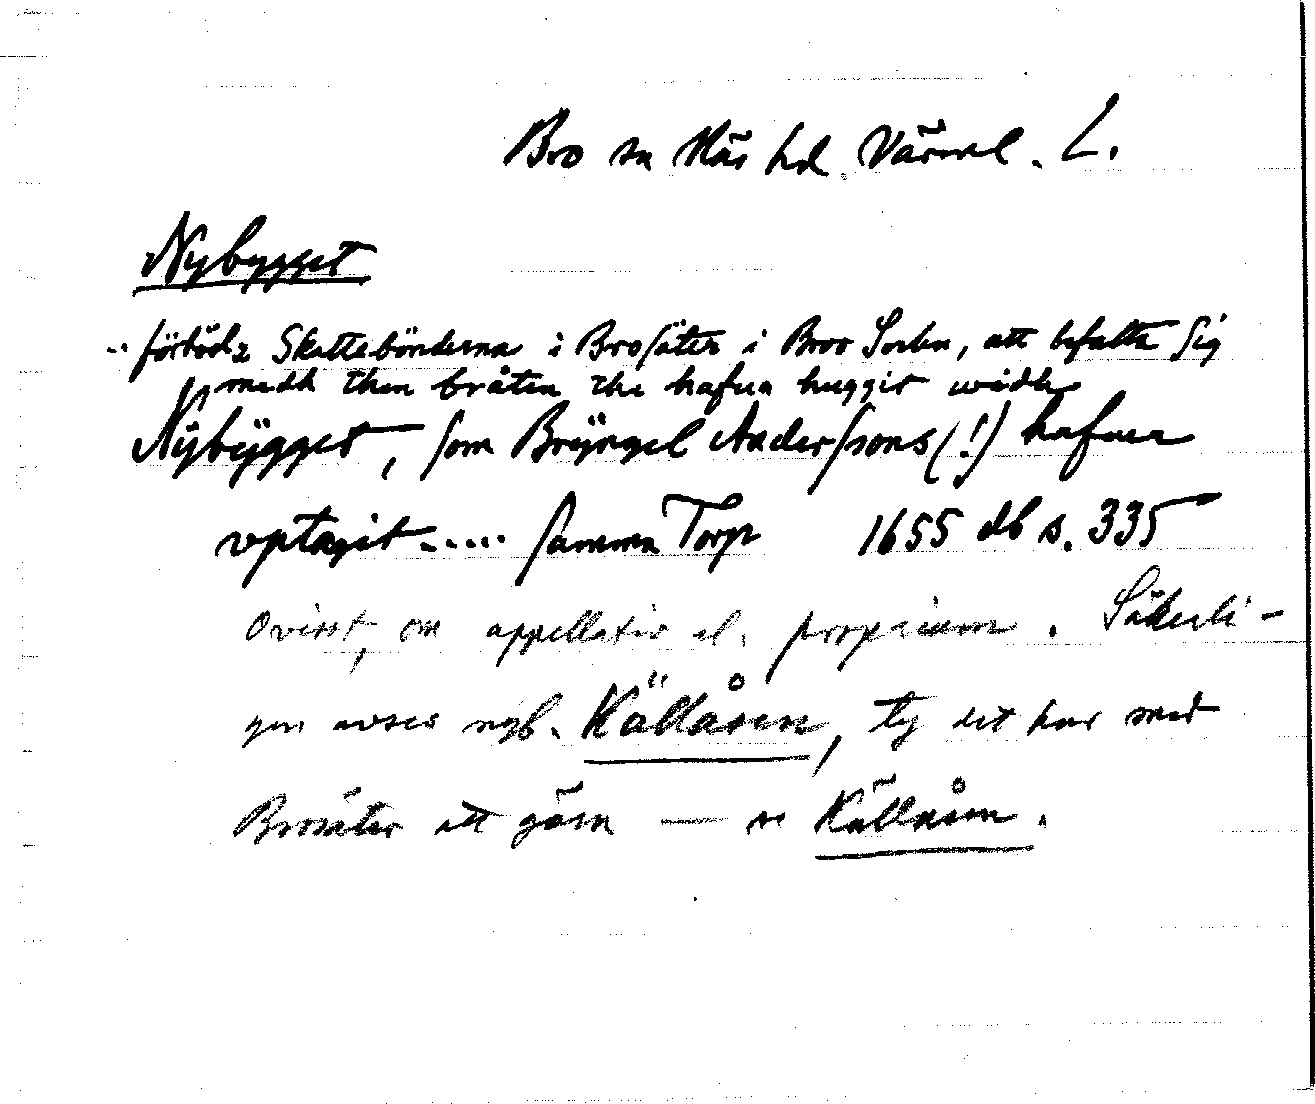 Bro sn Näs hd Värml. L.
Nybygget
.. förbödz Skattebönderna i Brosäter i Broo Sochn, att befatta sig
medh then bråten the hafua huggit widh
Nÿbÿgget, som Brÿngel Anderssons(!) hafuer
vptagit..... samma Torp 1655 db s. 335
Ovisst, om appellativ el. proprium. Säkerli-
gen avses nyb. Källåsen, ty det har med
Brosäter att göra — se Källåsen.